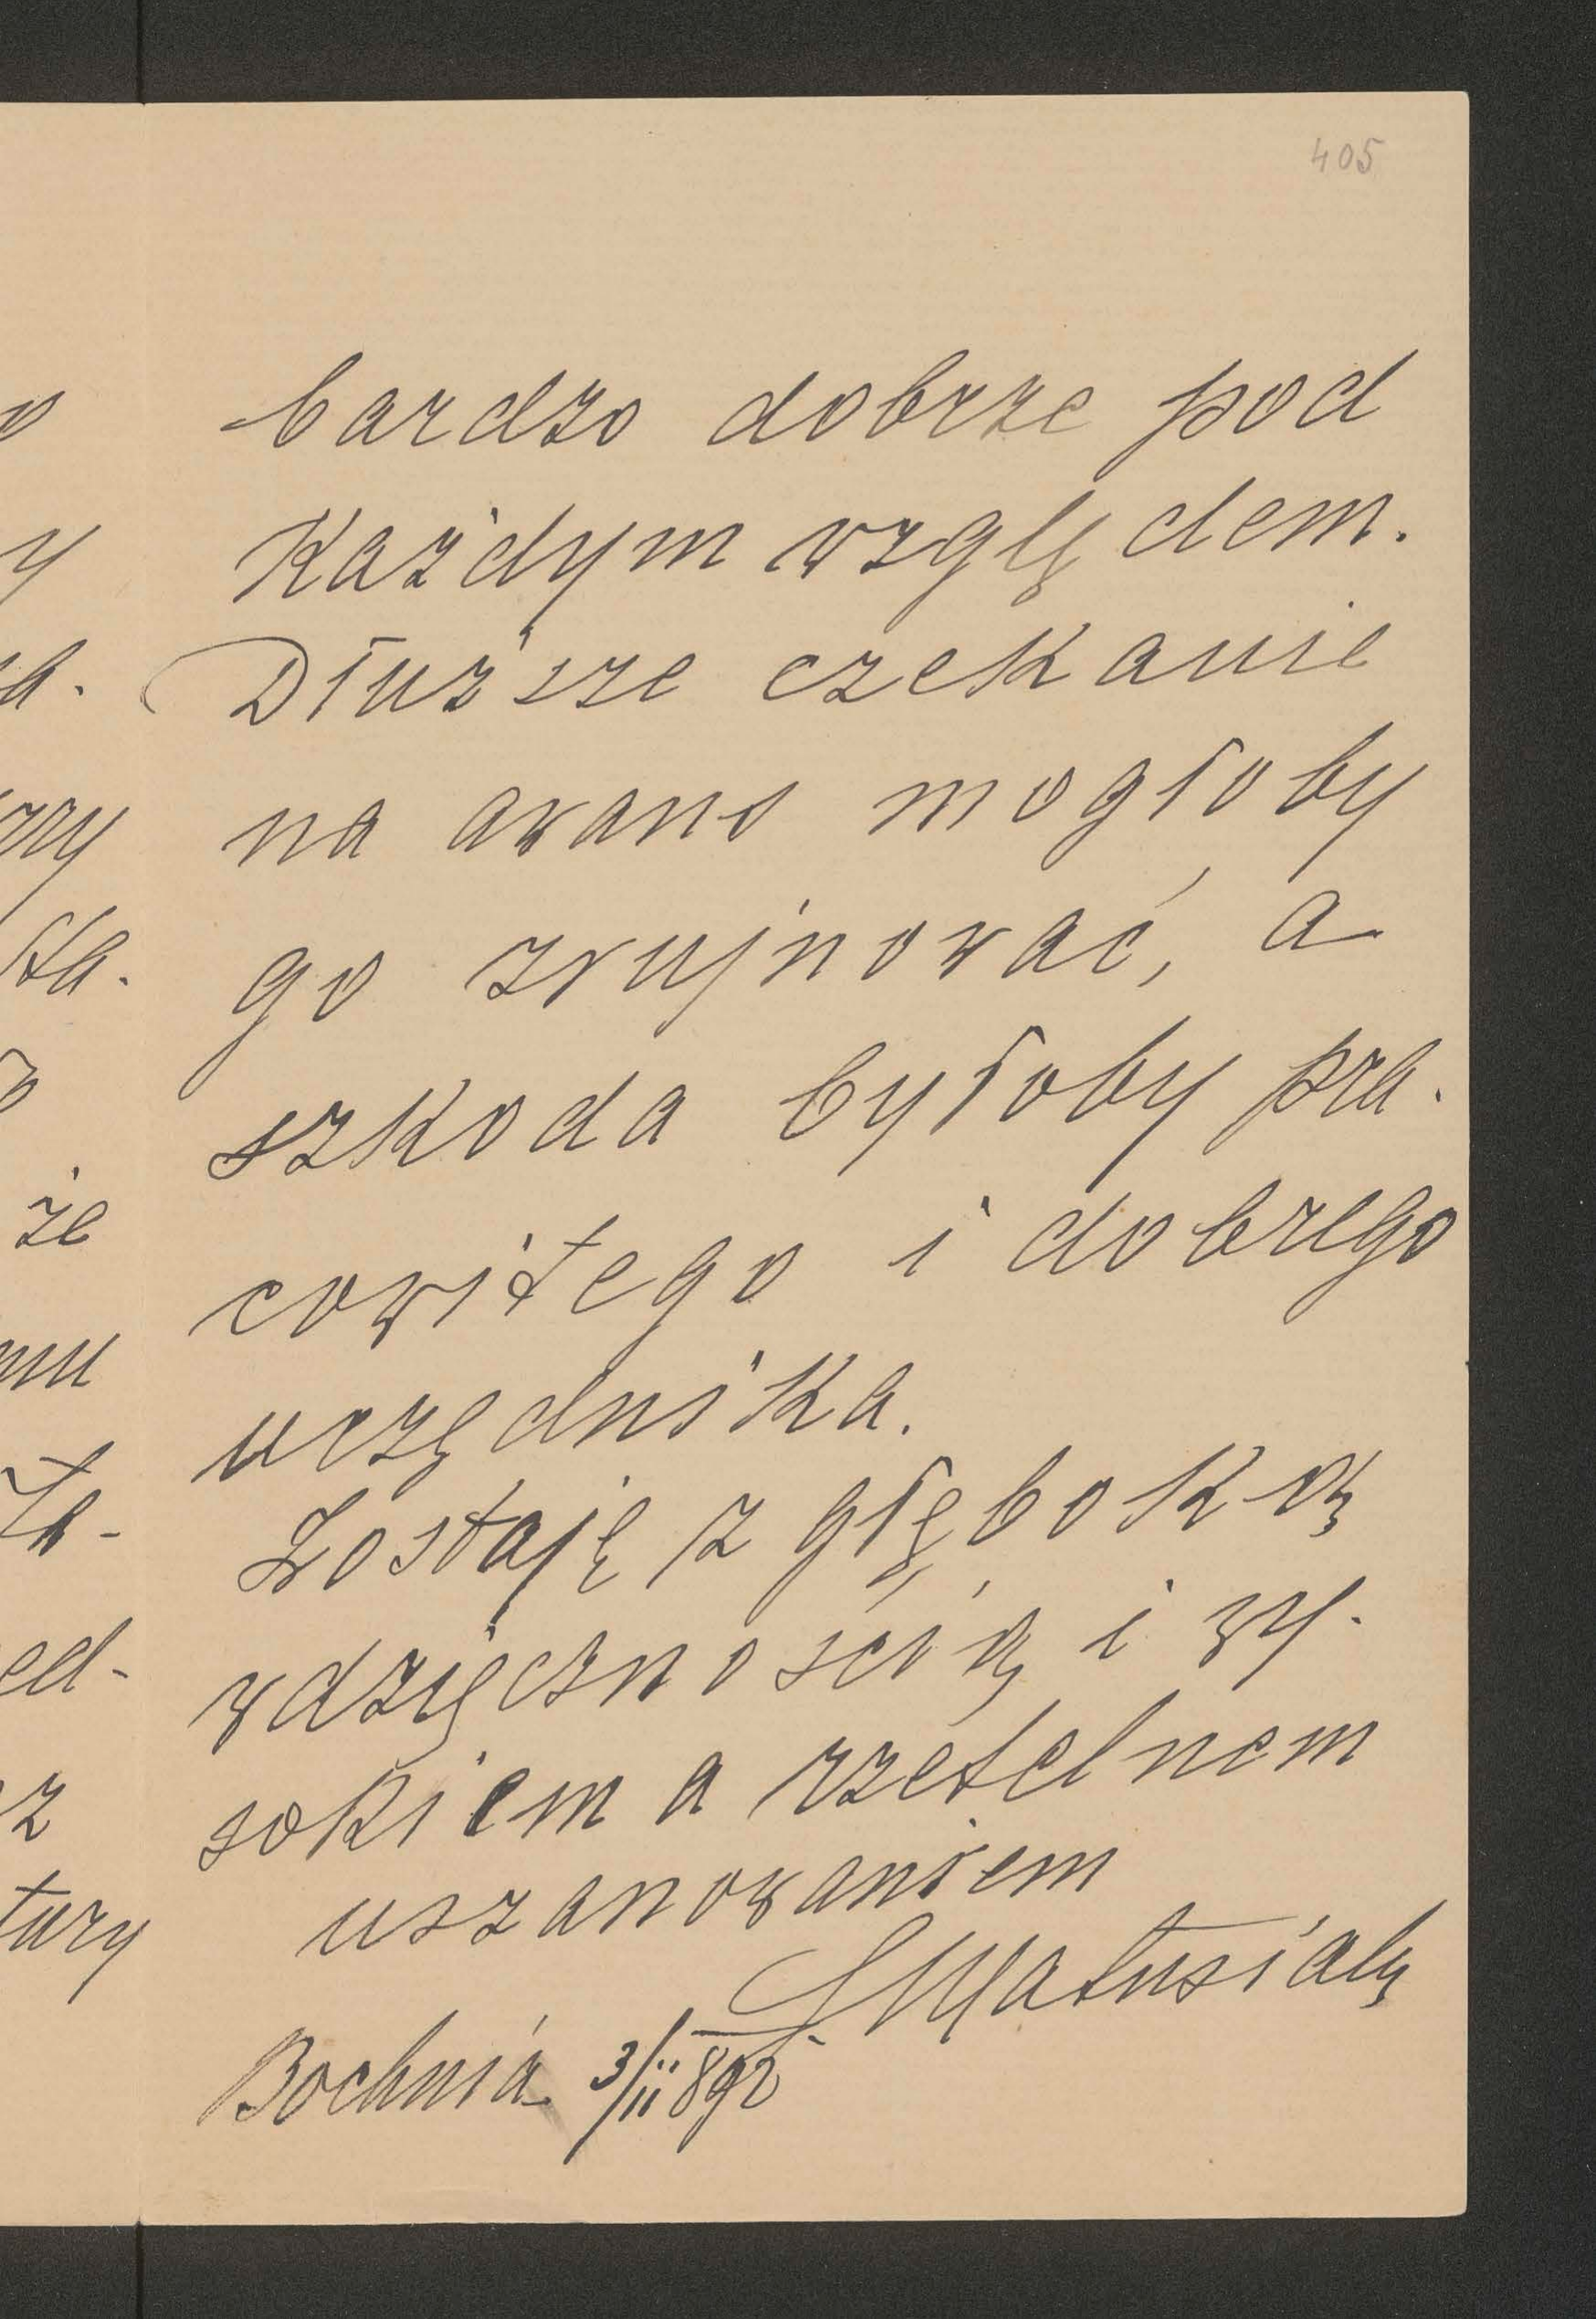 405
bardzo dobrze pod
każdym względem.
Dłuższe czekanie
na awans mogłoby
go zrujnować, a
szkoda byłoby pra-
cowitego i dobrego
urzędnika.
Zostaję z głęboką
wdzięcznością i wy-
sokiem a rzetelnem
uszanowaniem
Bochnia 3/II 892
że